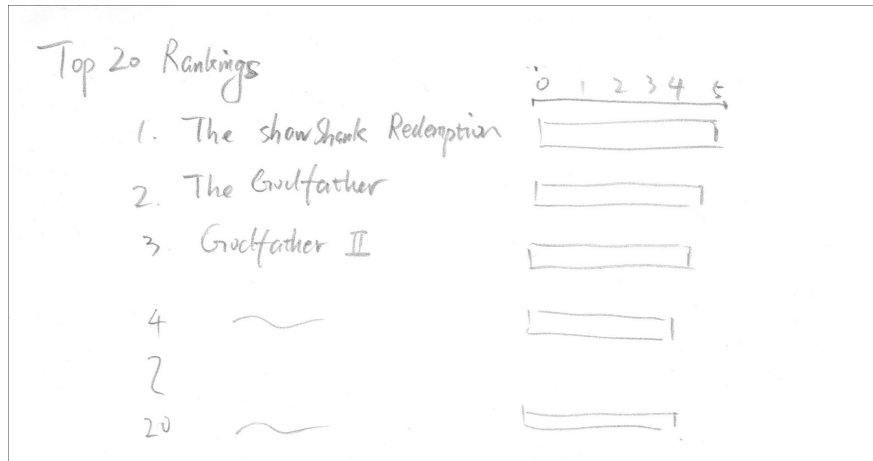 Top 20 Rankings
0 1 2 3 4 5
1. The showshank Redemption
2. The Godfather
3 Godfather II
4
20